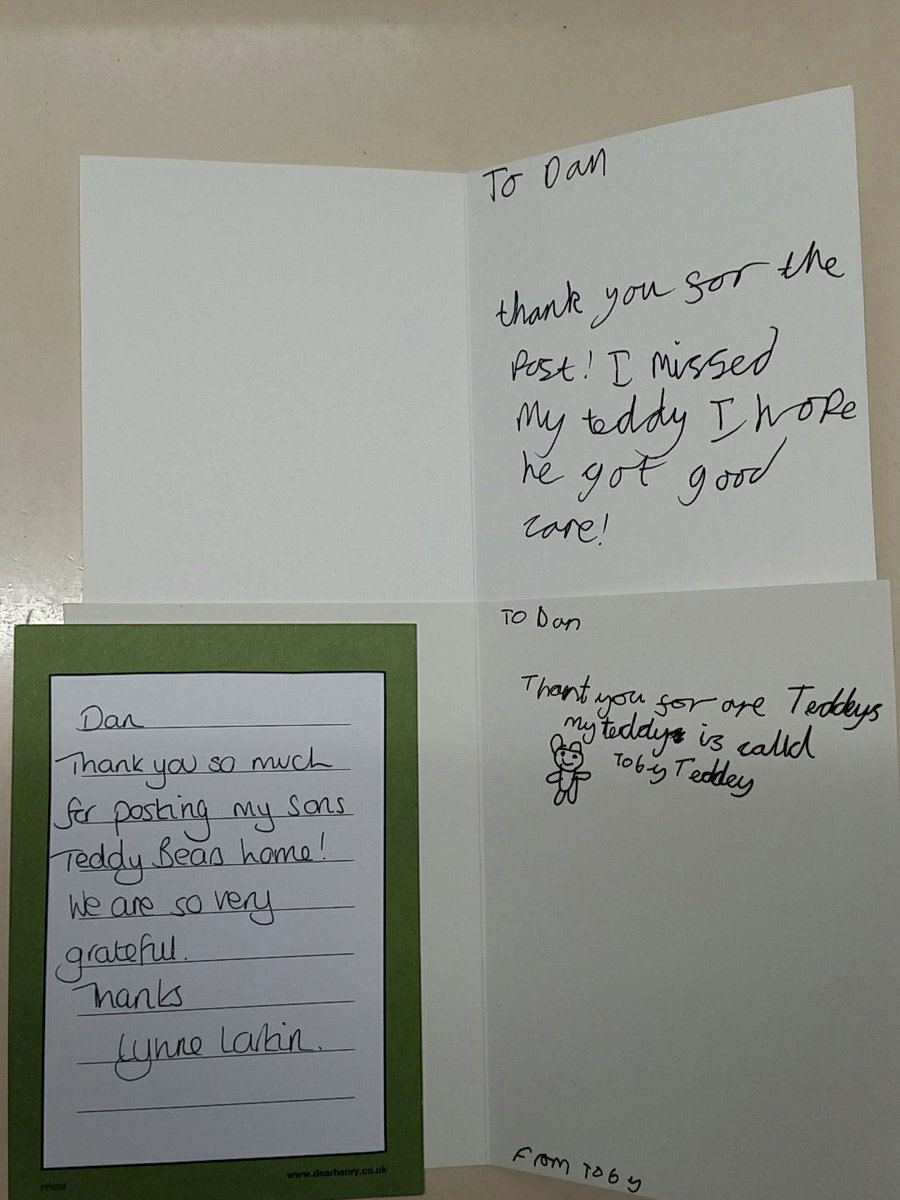 To Dan
thank you for the
Post! I missed
My teddy I hope
he got good
care!
To Dan
Thant you for are Teddeys
my teddys is calld
Toby Teddey
From Toby
Dan
Thank you so much
for posting my sons
Teddy Bears home!
We are so very
grateful.
Thanks
Lynne Larkin.
www.dearhenry.co.uk